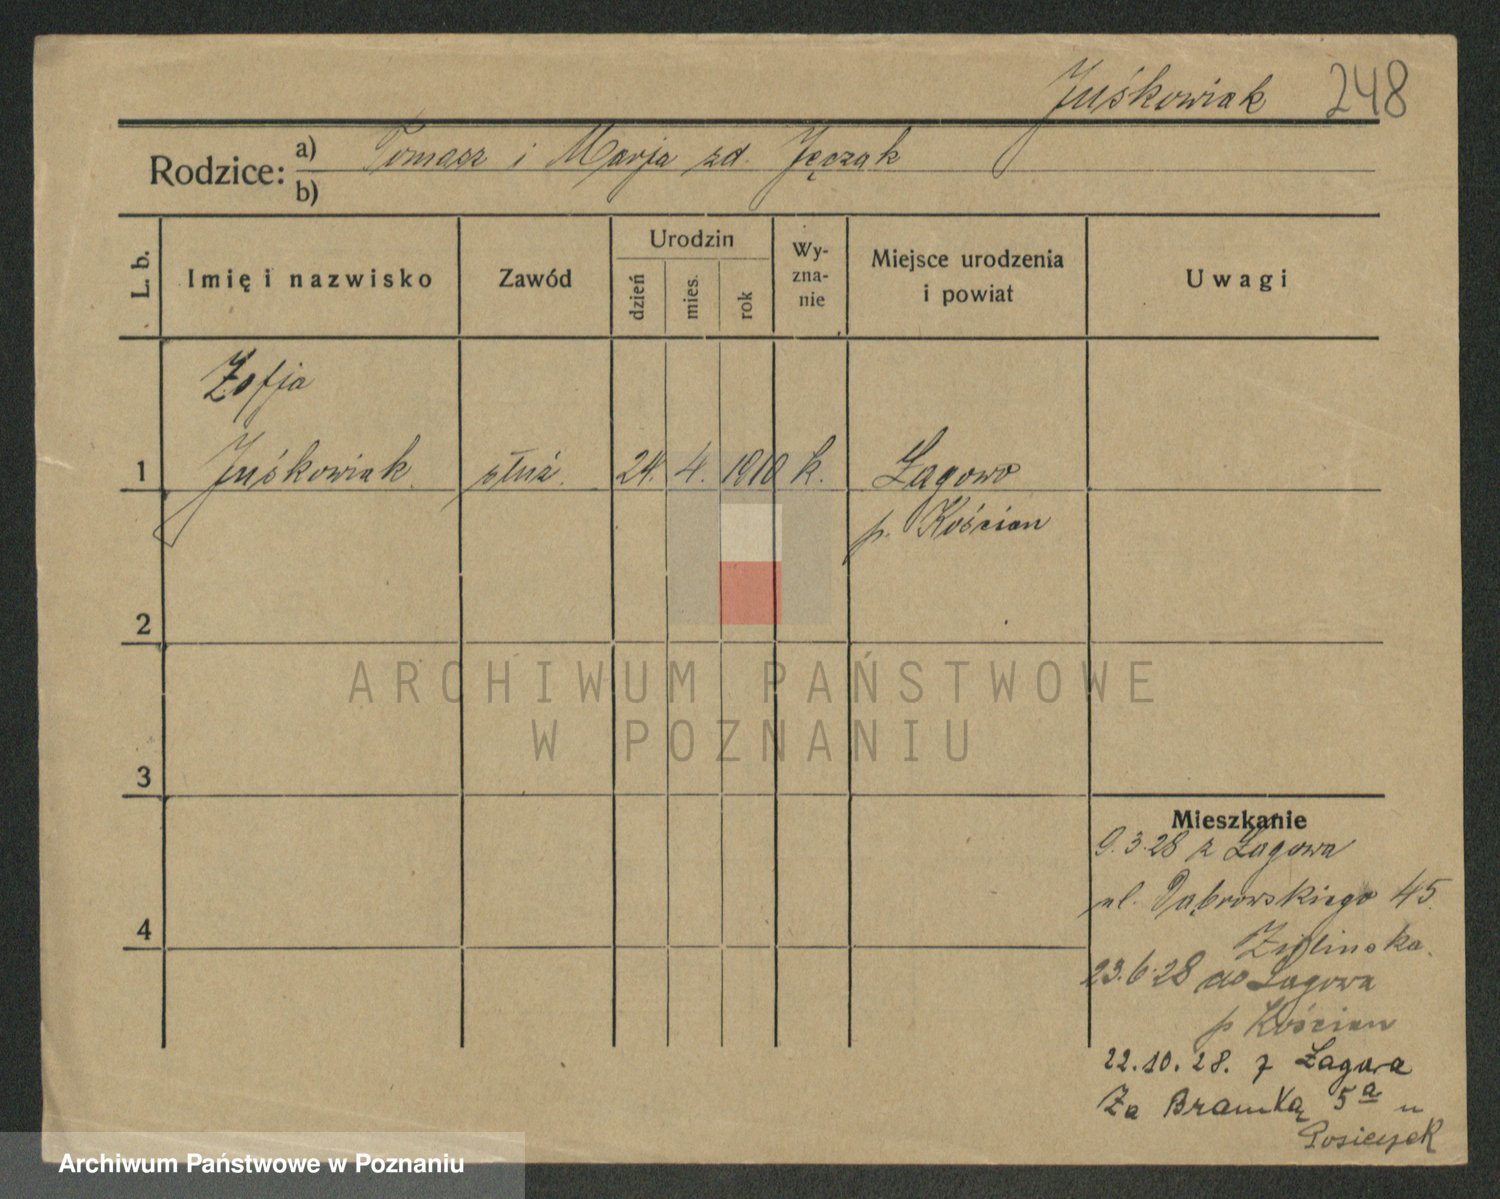 Juśkowiak 248
Rodzice: a) Tomasz i Marja zd. Jęczak
b)
L. b.
Imię i nazwisko
Zawód
Urodzin
dzień
mies.
rok
Wy-
zna-
nie
Miejsce urodzenia
i powiat
Uwagi
Zofja
1 Juśkowiak służ. 24. 4. 1910 k. Łagowo
p. Kościan
2
3
4
Mieszkanie
9.3.28 z Łagowa
ul. Dąbrowskiego 45.
Zielinska.
23.6.28 do Łagowa
p Kościan
22.10.28. z Łagowa
Za Bramką 5a u
ARCHIWUM PAŃSTWOWE
W POZNANIU
Archiwum Państwowe w Poznaniu